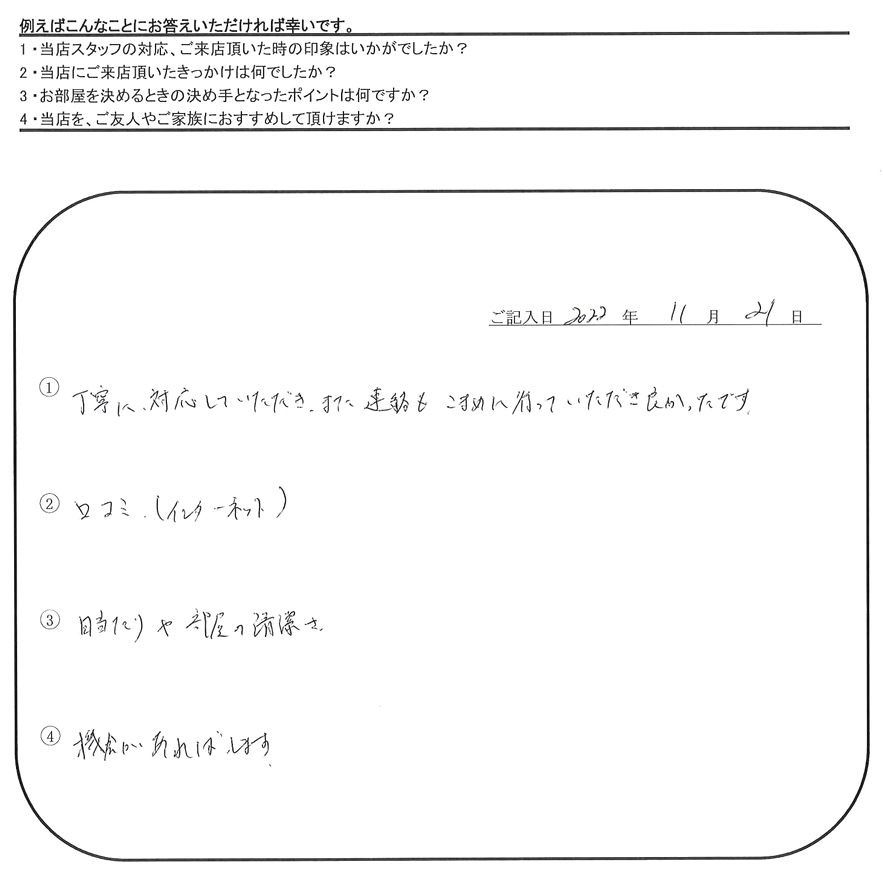 例えばこんなことにお答えいただければ幸いです。
1・当店スタッフの対応、ご来店頂いた時の印象はいかがでしたか？
2・当店にご来店頂いたきっかけは何でしたか？
3・お部屋を決めるときの決め手となったポイントは何ですか？
4・当店を、ご友人やご家族におすすめして頂けますか？
ご記入日 2022 年 11 月 21 日
① 丁寧に、対応していただき、また連絡もこまめに行っていただき良かったです。
② 口コミ.(インターネット)
③ 日当たりや部屋の清潔さ
④ 機会があればします。